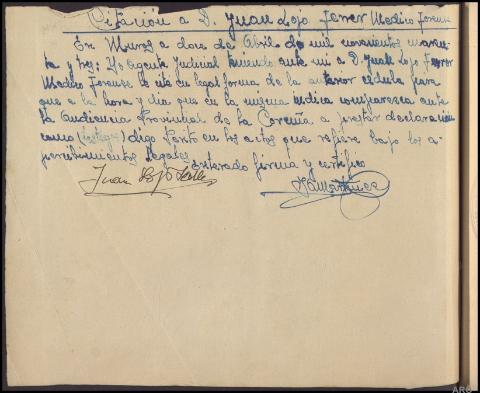 Citación a D. Juan Lojo Ferer Medico Forense
En Muros a doce de Abril de mil novecientos cuaren-
ta y tres: Yo Agente Judicial teniendo ante mi a D. Juan Lojo Ferrer
Medico Forense le cité en legal forma de la anterior cedula para
que a la hora y dia que en la misma indica comparezca ante
la Audiencia Provincial de la Coruña a prestar declaración
como (testigo) digo Perito en los actos que refiere bajo los a-
percibimientos legales
Enterado firma y certifico
Juan Lojo
ARG